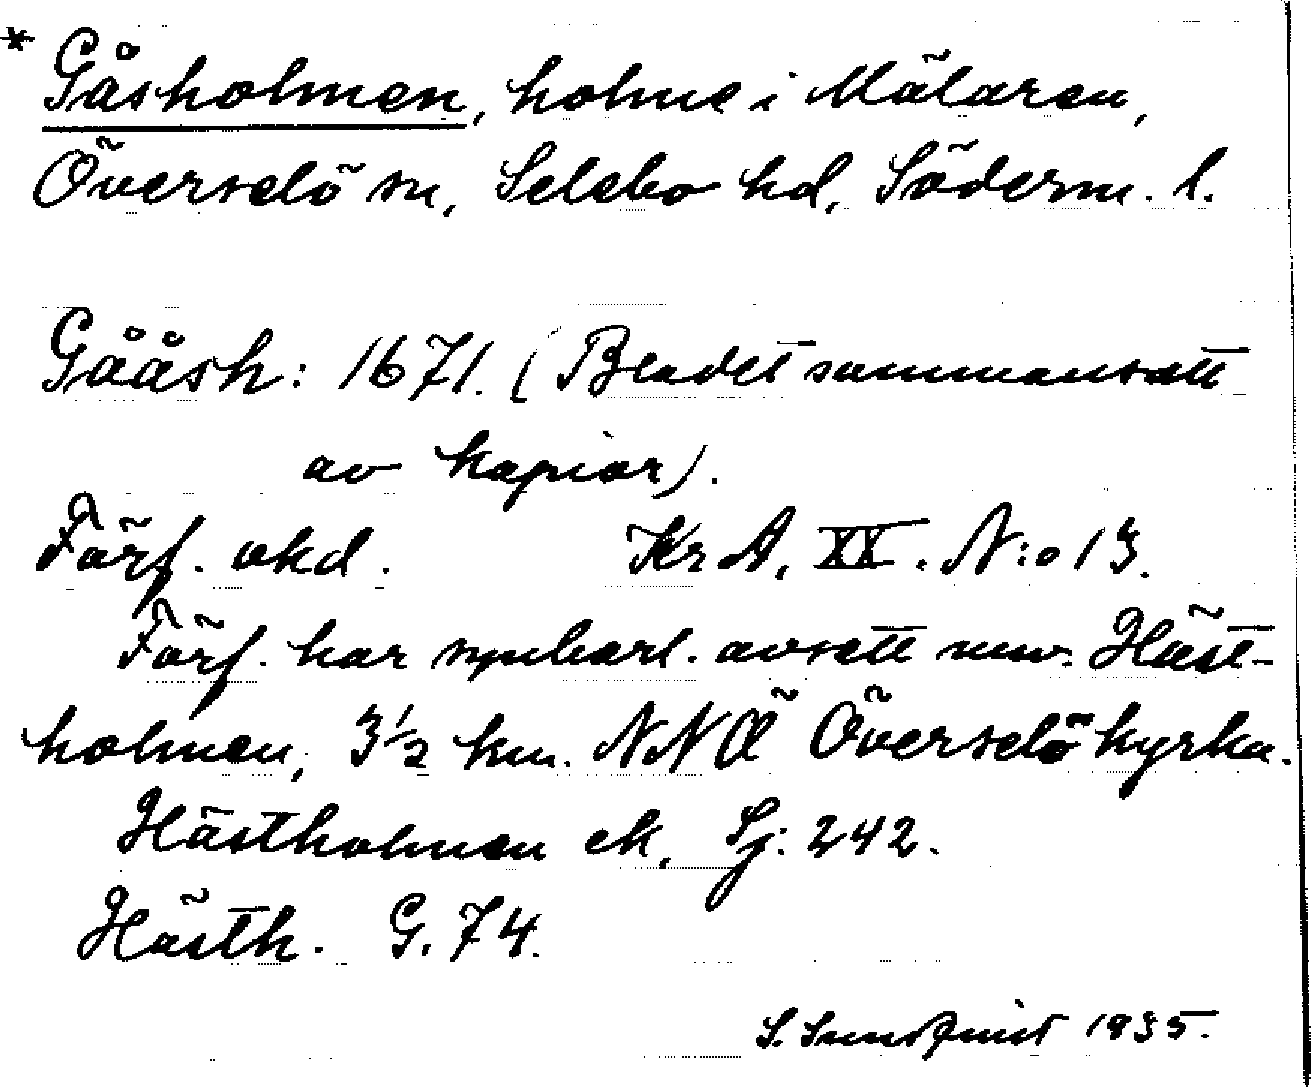 * Gåsholmen, holme i Mälaren,
Överselö sn, Selebo hd, Söderm. l.
Gååsh: 1671. (Bladet sammansatt
av kopior).
Förf. okd. Kr A. XX. N:o 13.
Förf. har synbarl. avsett nuv. Häst-
holmen, 3½ km. NNÖ Överselö kyrka.
Hästholmen ek. Sj: 242.
Hästh. G. 74.
S. Sundquist 1935.